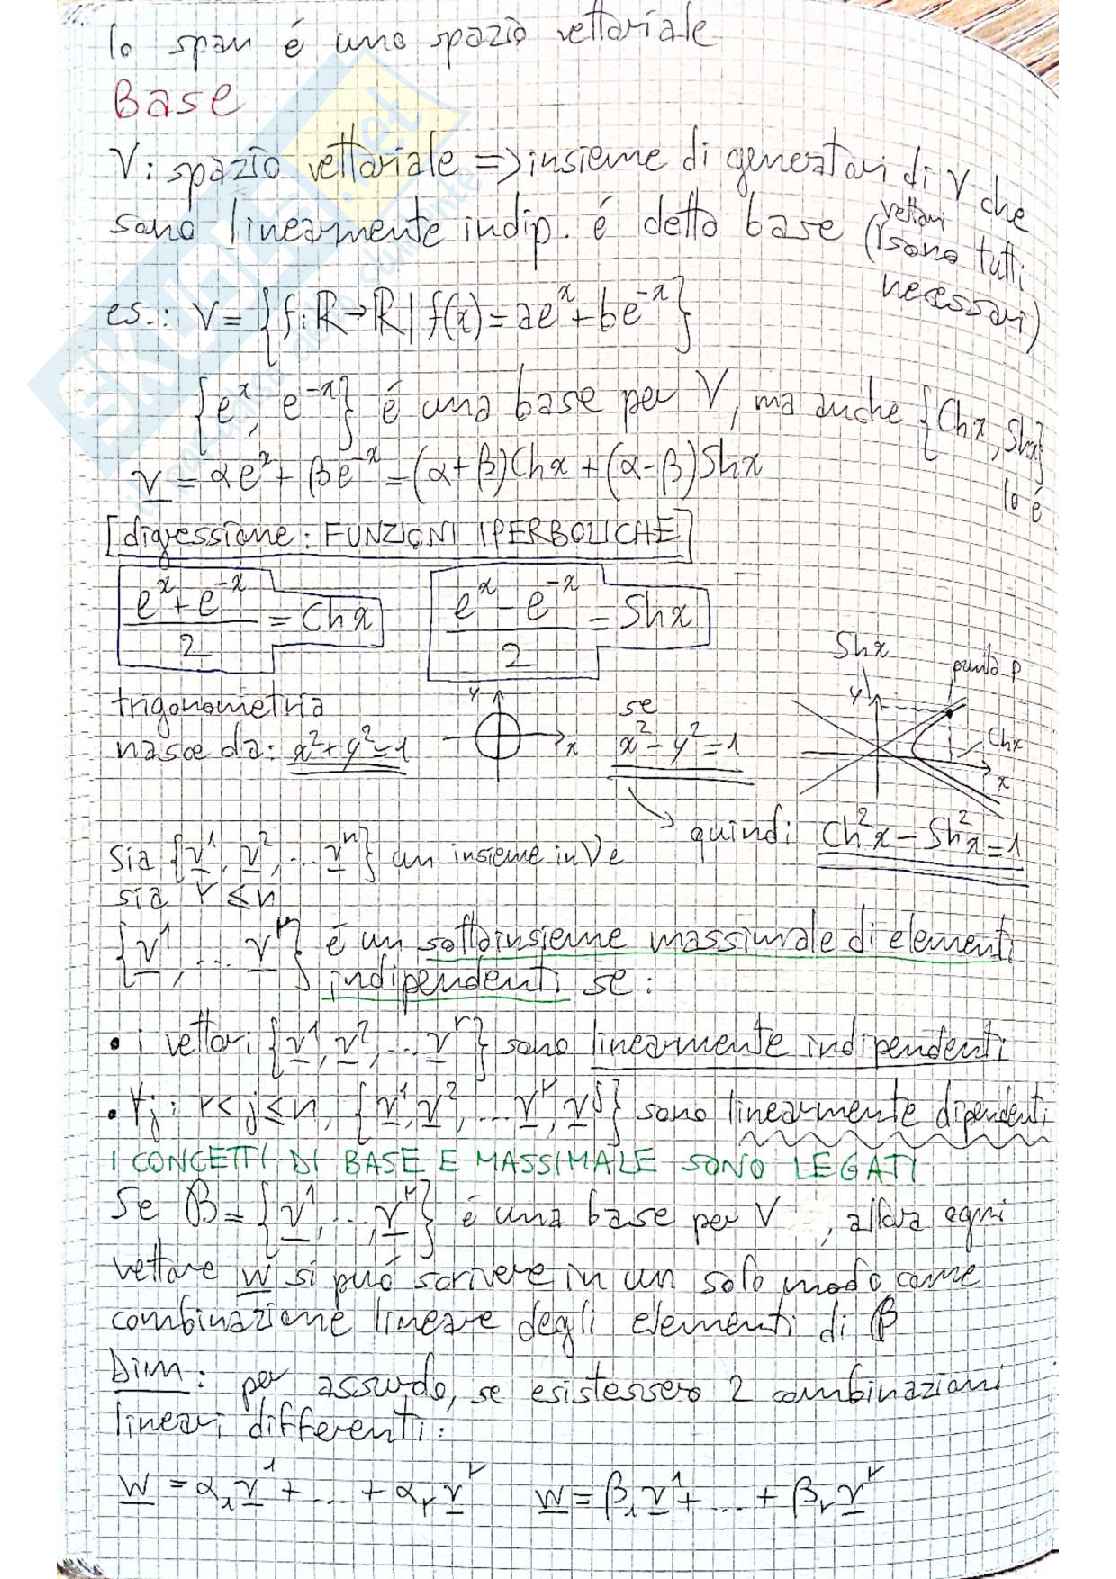 lo span é uno spazio vettoriale
Base
V: spazio vettoriale => insieme di generatori di V che
sono linearmente indip. é detto base (i vettori sono tutti necessari)
es.: V = {f: ℝ→ℝ | f(x) = ae^x + be^-x}
{e^x, e^-x} é una base per V, ma anche {Chx, Shx} lo é
v = αe^x + βe^-x = (α+β)Chx + (α-β)Shx
[digressione: FUNZIONI IPERBOLICHE]
(e^x + e^-x)/2 = Chx (e^x - e^-x)/2 = Shx
trigonometria
nasce da: x²+y²=1
y
x
se
x²-y²=1
Shx
y
punto P
Chx
x
quindi Ch²x - Sh²x = 1
Sia {v¹, v², ... vⁿ} un insieme in V e
sia r ≤ n
{v¹, ... vʳ} é un sottoinsieme massimale di elementi
indipendenti se:
• i vettori {v¹, v², ... vʳ} sono linearmente indipendenti
• ∀j: r<j≤n, {v¹, v², ... vʳ, vʲ} sono linearmente dipendenti
I CONCETTI DI BASE E MASSIMALE SONO LEGATI
Se B = {v¹, ..., vʳ} é una base per V, allora ogni
vettore w si puó scrivere in un solo modo come
combinazione lineare degli elementi di B
Dim: per assurdo, se esistessero 2 combinazioni
lineari differenti:
w = α₁v¹ + ... + αᵣvʳ w = β₁v¹ + ... + βᵣvʳ
SKUOLA.net